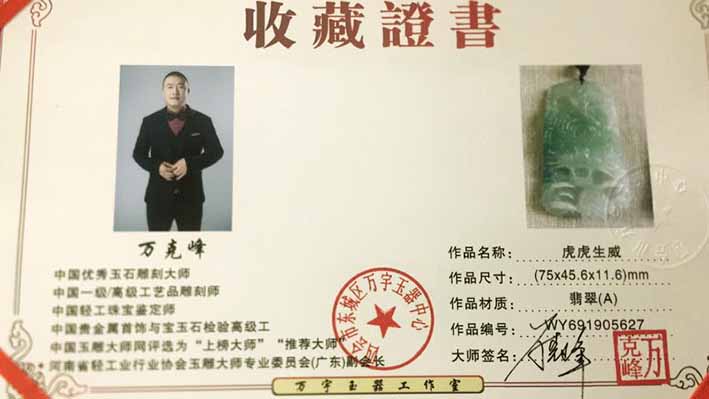 收藏證書
万克峰
中国优秀玉石雕刻大师
中国一级/高级工艺品雕刻师
中国轻工珠宝鉴定师
中国贵金属首饰与宝玉石检验高级工
中国玉雕大师网评选为“上榜大师”“推荐大师”
河南省轻工业行业协会玉雕大师专业委员会(广东)副会长
作品名称: 虎虎生威
作品尺寸: (75x45.6x11.6)mm
作品材质: 翡翠(A)
作品编号: WY691905627
大师签名: 万克峰
万克峰
四会市东城区万宇玉器中心
万宇玉器工作室